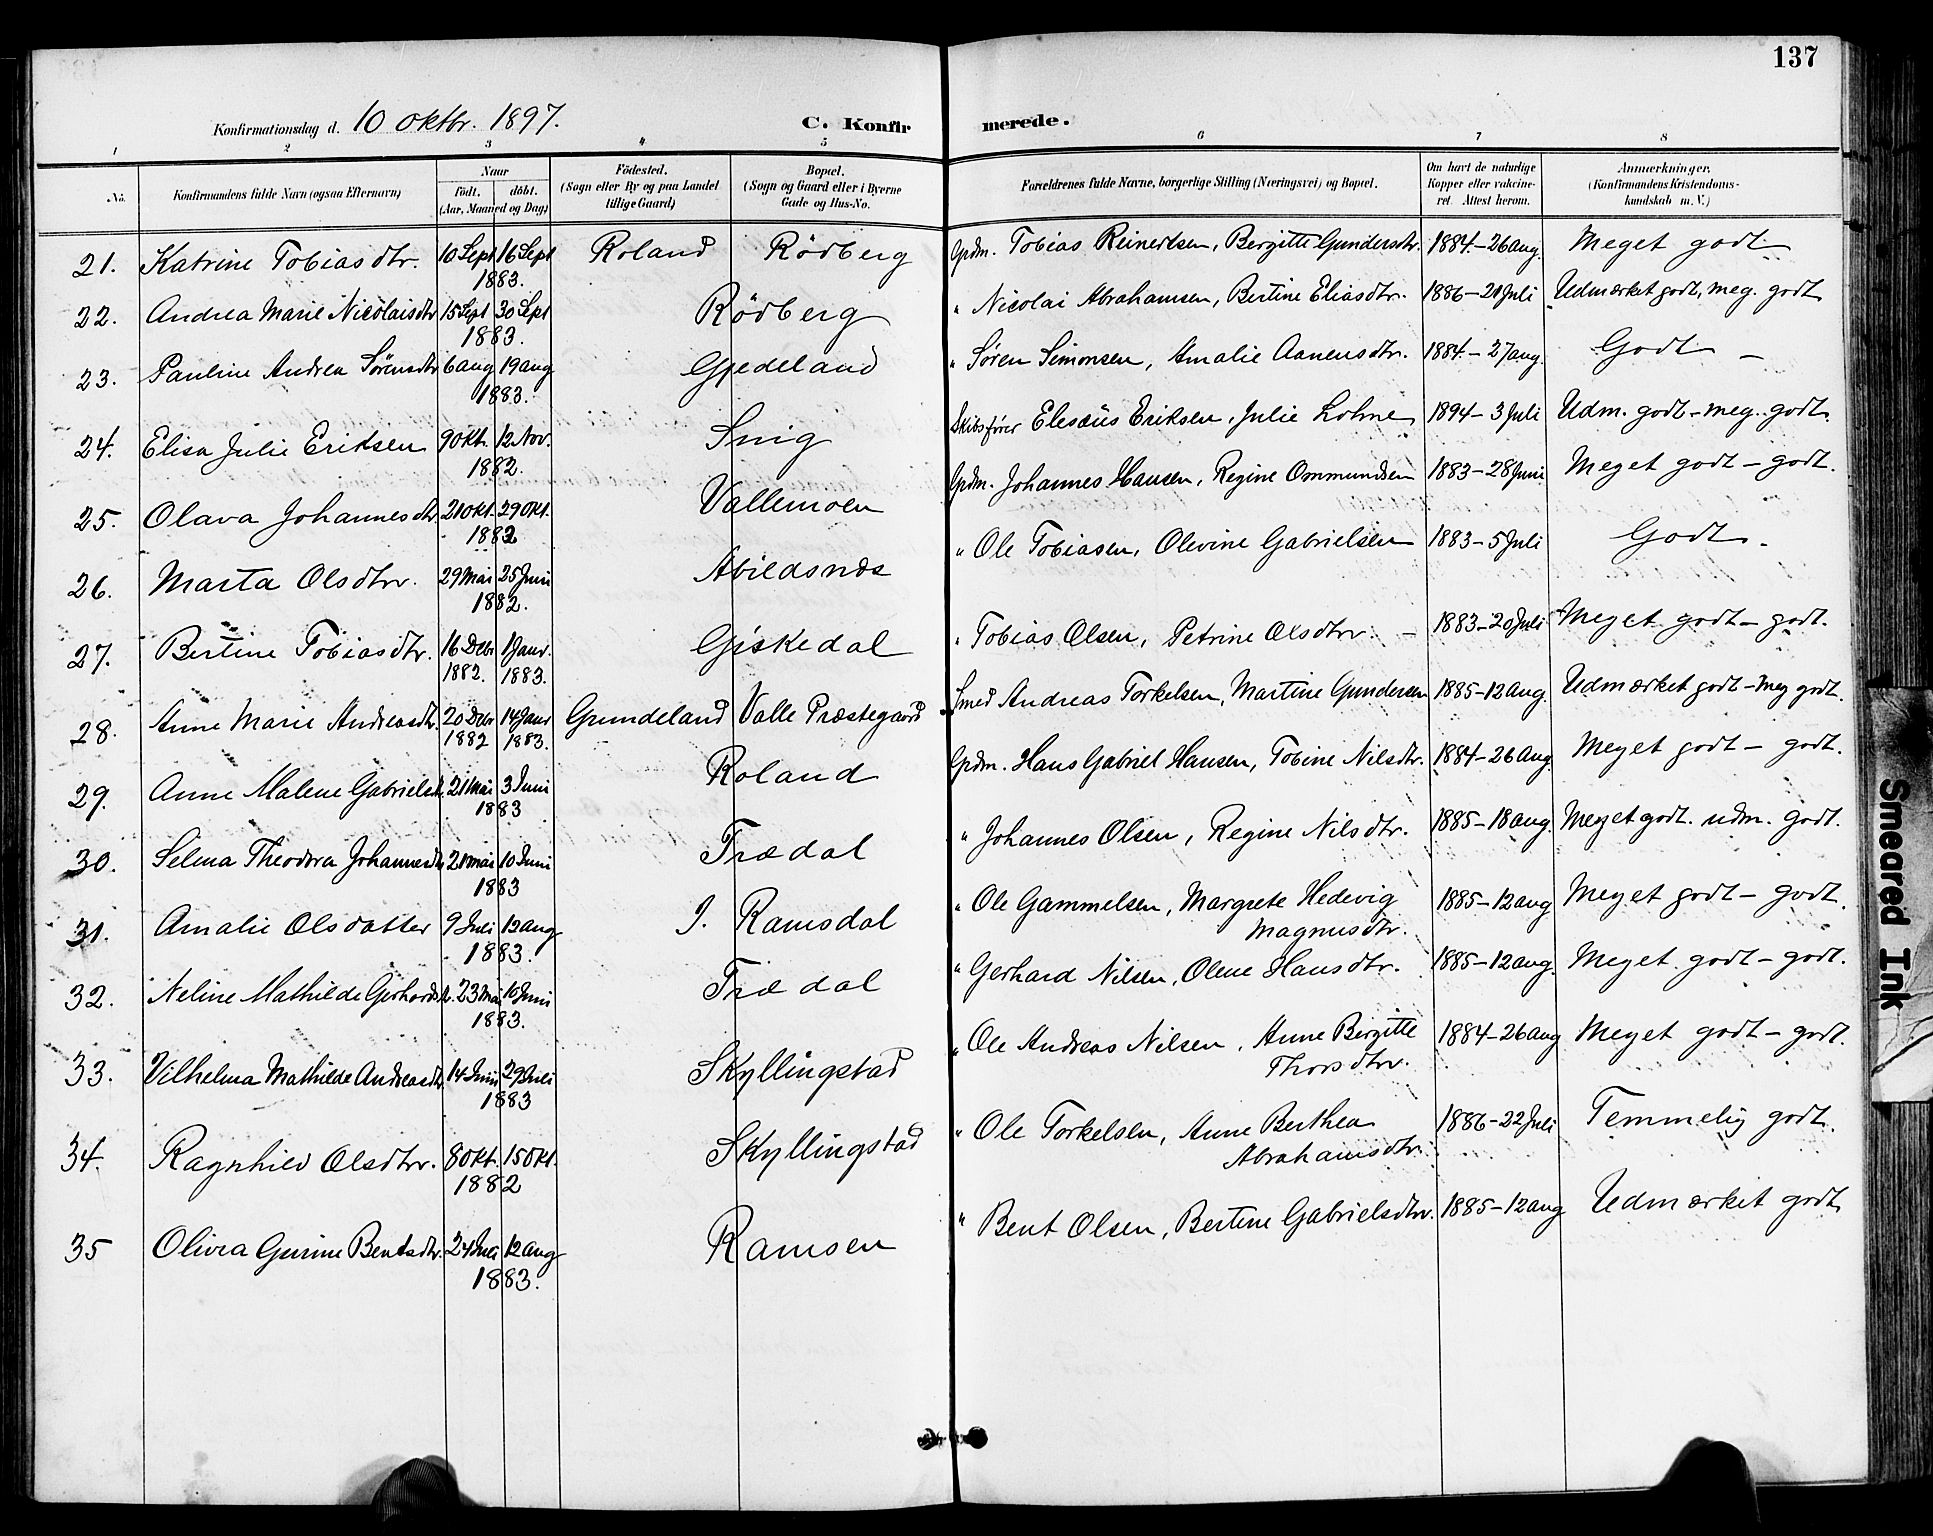 137
Konfirmationsdag d. 10 oktbr. 1897.
C. Konfirmerede.
1 2 3 4 5 6 7 8
No. Konfirmandens fulde Navn (ogsaa Efternavn) Naar födt. döbt. (Aar, Maaned og Dag) Födested. (Sogn eller By og paa Landet tillige Gaard) Bopæl. (Sogn og Gaard eller i Byerne Gade og Hus-No. Forældrenes fulde Navne, borgerlige Stilling (Næringsvei) og Bopæl. Om havt de naturlige Kopper eller vakcineret. Attest herom. Anmærkninger. (Konfirmandens Kristendomskundskab m. V.)
21. Katrine Tobiasdtr. 10 Sept 16 Sept 1883. Roland Rödberg Gpdm. Tobias Reinertsen, Bergitte Gundersdtr. 1884-26 aug. Meget godt
22. Andrea Marie Nicolaisdtr 15 Sept 30 Sept 1883. Rödberg " Nicolai Abrahamsen, Bertine Eliasdtr. 1886-21 Juli Udmærket godt, meg. godt
23. Pauline Andrea Sörensdtr 6 aug 19 aug 1883. Gjedeland " Søren Simonsen, Amalie Aanensdtr. 1884-27 aug. Godt
24. Elisa Julie Eriksen 9 Okt. 12 Nov. 1882. Snig Skibsfører Elesæus Eriksen, Julie Lohne 1894-3 Juli Udm. godt-meg. godt.
25. Olava Johannesdtr. 21 Okt. 29 Okt. 1882 Vallemoen Gpdm. Johannes Hansen, Regine Ommundsen 1883-28 Juni Meget godt-godt.
26. Marta Olsdtr. 29 Mai 25 Juni 1882. Abildsnæs " Ole Tobiasen, Olevine Gabrielsen 1883-5 Juli Godt.
27. Bertine Tobiasdtr. 16 Debr 1882. 1 Janr. 1883. Giskedal " Tobias Olsen, Petrine Olsdtr. 1883-20 Juli Meget godt-godt.
28. Anne Marie Andreasdtr. 20 Debr 1882 14 Janr 1883. Grundeland Valle Præstegaard Smed Andreas Torkelsen, Martine Gundersen 1885-12 Aug. Udmærket godt-meg godt.
29. Anne Malene Gabrielsdtr. 21 Mai 3 Juni 1883 Roland Gpdm. Hans Gabriel Hansen, Tobine Nilsdtr. 1884-26 Aug. Meget godt-godt.
30. Selma Theodora Johannesdtr 21 mai 10 Juni 1883 Trædal " Johannes Olsen, Regine Nilsdtr. 1885-18 aug. Meget godt. udm. godt.
31. Amalie Olsdatter 9 Juli 12 aug 1883. I. Ramsdal " Ole Gammelsen, Margrete Hedevig Magnusdtr. 1885-12 aug Meget godt-godt.
32. Neline Mathilde Gerhardsdtr. 23 Mai 10 Juni 1883. Trædal " Gerhard Nilsen, Olene Hansdtr. 1885-12 aug. Meget godt-godt.
33. Vilhelma Mathilde Andreasdtr. 14 Juni 29 Juli 1883 Skyllingstad " Ole Andreas Nilsen, Anne Birgitte Thorsdtr. 1884-26 aug Meget godt-godt.
34. Ragnhild Olsdtr. 8 Okt. 15 Okt. 1882 Skyllingstad " Ole Torkelsen, Anne Berthea Abrahamsdtr. 1886-22 Juli Temmelig godt.
35 Olivia Gurine Bentsdtr. 24 Juli 12 aug 1883. Ramsen " Bent Olsen, Bertine Gabrielsdtr. 1885-12 aug Udmærket godt
Smeared Ink